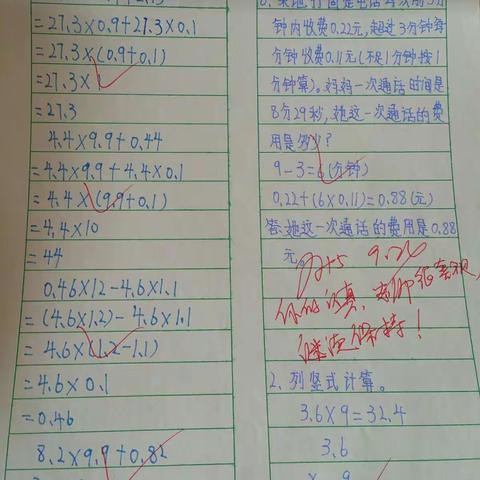 =27.3×0.9+27.3×0.1
=27.3×(0.9+0.1)
=27.3×1
=27.3
4.4×9.9+0.44
=4.4×9.9+4.4×0.1
=4.4×(9.9+0.1)
=4.4×10
=44
0.46×12-4.6×1.1
=(4.6×1.2)-4.6×1.1
=4.6×(1.2-1.1)
=4.6×0.1
=0.46
8.2×9.9+0.82
钟内收费0.22元,超过3分钟每
分钟收费0.11元(不足1分钟按1
分钟算)。妈妈一次通话时间是
8分29秒,她这一次通话的费
用是多少?
9-3=6(分钟)
0.22+(6×0.11)=0.88(元)
答:她这一次通话的费用是0.88
元。
9.26
你的认真,老师很喜欢,
继续保持!
2、列竖式计算。
3.6×9=32.4
3.6
× 9